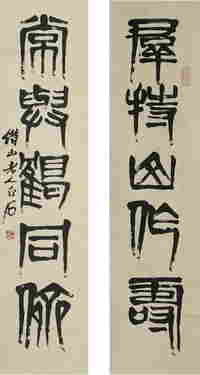 羣持山作壽
常與鶴同儕
借山老人白石